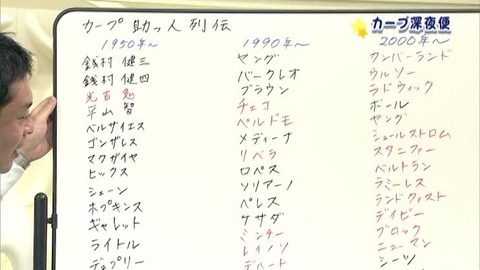 カープ 助っ人 列伝
カープ深夜便
1950年〜
銭村 健三
銭村 健四
光吉 勉
平山 智
ベルサイエス
ゴンザレス
マクガイヤ
ヒックス
シェーン
ホプキンス
ギャレット
ライトル
デュプリー
1990年〜
ヤング
バークレオ
ブラウン
チェコ
ペルドモ
メディーナ
リベラ
ロペス
ソリアーノ
ペレス
ケサダ
ミンター
レイノソ
デハート
2000年〜
カンバーランド
ウルソー
ラドウィック
ボール
ヤング
シュールストロム
スタニファー
ベルトラン
ラミーレス
ランドクィスト
デイビー
ブロック
ニューマン
シーツ